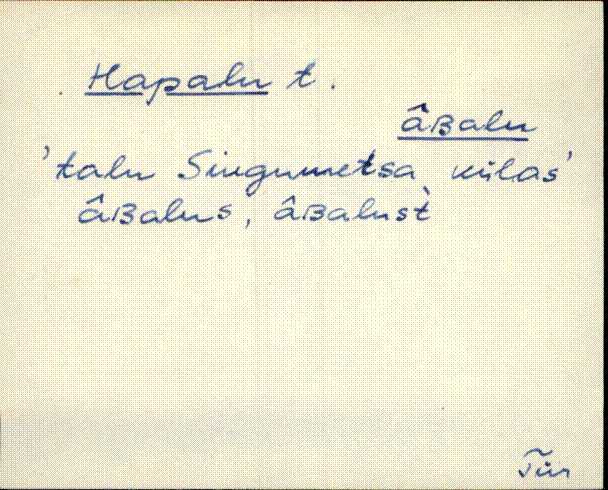 Hapalu t.
âBalu
'talu Singumetsa külas'
âBalus, âBalust̀
Tür